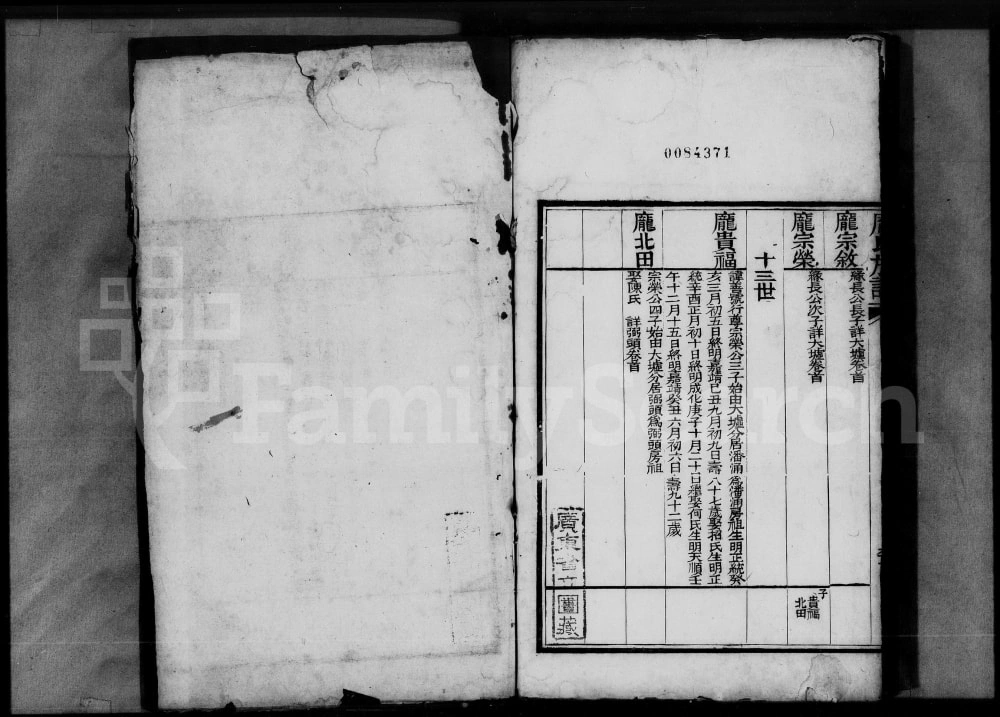 0084371
龐宗敘
緣長公長子詳大墟卷首
龐宗榮
緣長公次子詳大墟卷首
子
貴福
北田
十三世
龐貴福
諱善號行尊宗榮公三子始由大墟分居潘涌爲潘涌房祖生明正統癸
亥三月初五日終明嘉靖己丑九月初九日壽八十七歲娶招氏生明正
統辛酉正月初十日終明成化庚子十月二十一日繼娶何氏生明天順壬
午十二月十五日終明嘉靖癸丑六月初六日壽九十二歲
龐北田
宗榮公四子始由大墟分居弼頭爲弼頭房祖
娶陳氏 詳弼頭卷首
廣東省立圖藏
FamilySearch